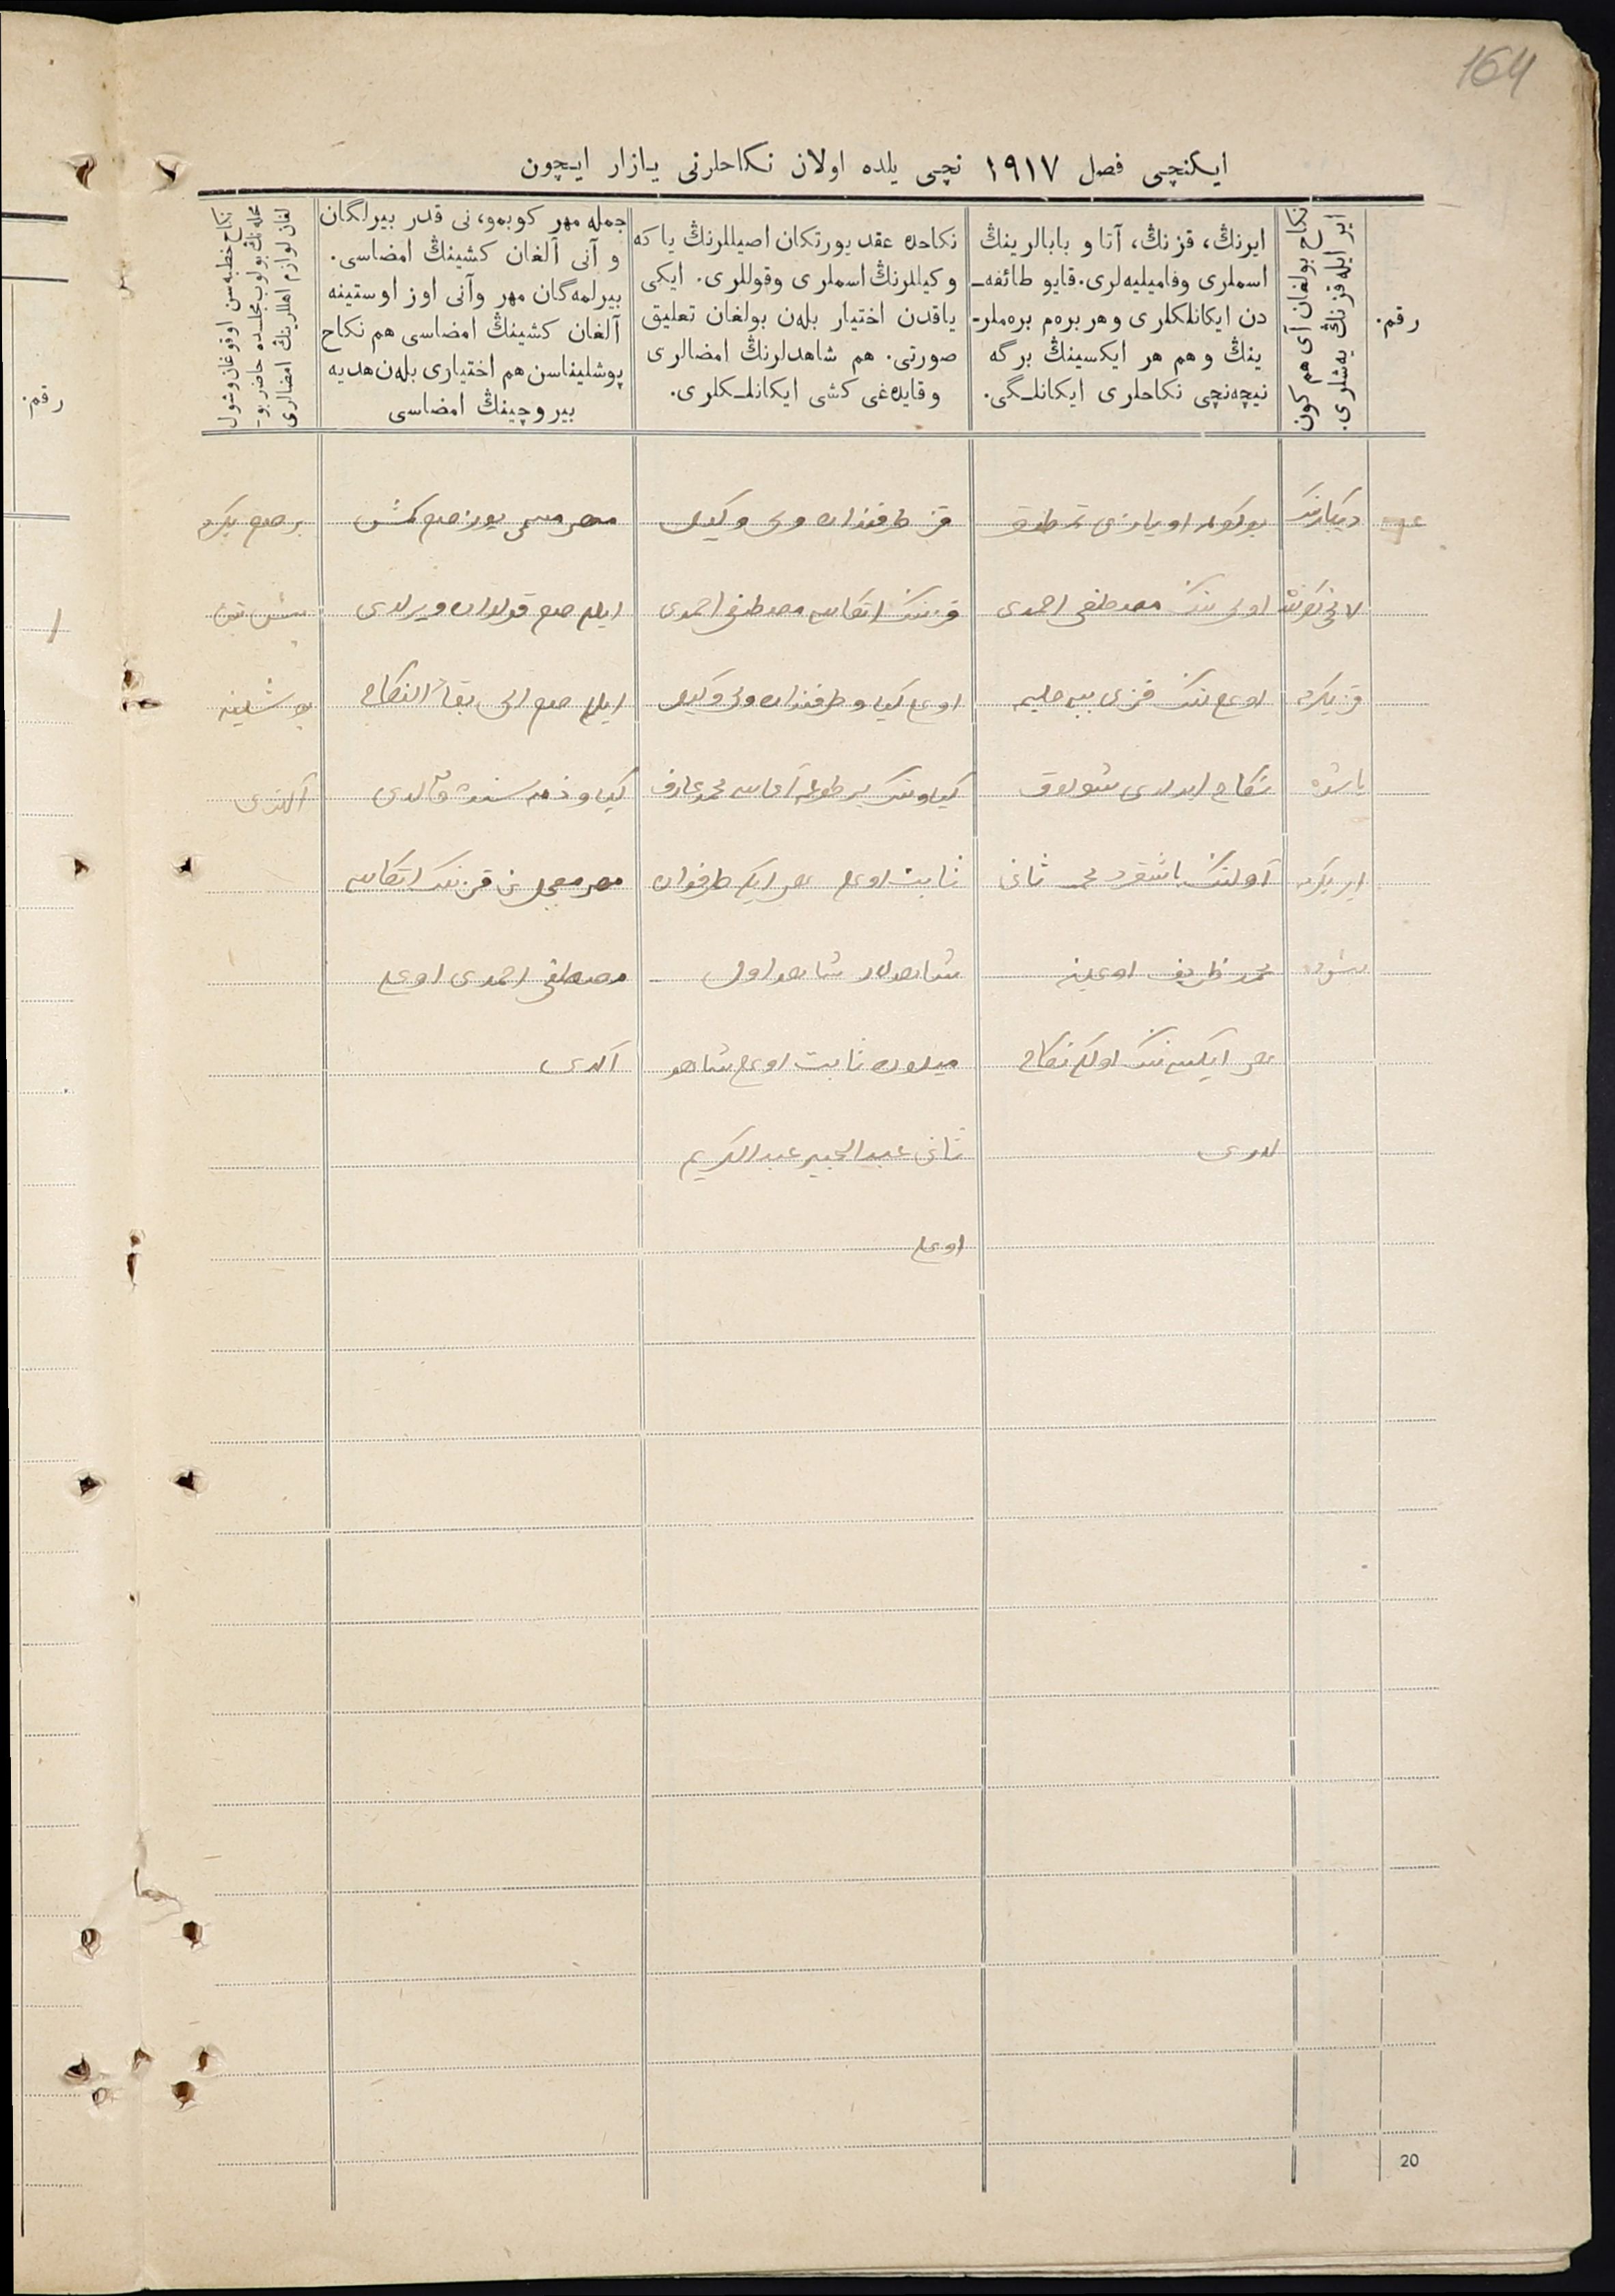 164
ایکنچی فصل ۱۹۱۷ نچی یلده اولان نکاحلرنی یازار ایچون
رقم.
نکاح بولغان آی هم کون
ایر ایله قزنڭ یەشلری.
ایرنڭ، قزنڭ، آتا و بابالرینڭ
اسملری وفامیلیەلری. قایو طائفه‌ـ
دن ایکانلکلری وهر برەم برەملر-
ینڭ وهم هر ایکسینڭ برگه
نیچەنچی نکاحلری ایکانلـگی.
نکاحده عقد یورتکان اصیللرنڭ یا که
وکیللرنڭ اسملری وقوللری. ایکی
یاقدن اختیار بلەن بولغان تعلیق
صورتی. هم شاهدلرنڭ امضالری
وقایدەغی کشی ایکانلـکلری.
جمله مهر کوبمو، نی قدر بیرلگان
و آنی آلغان کشینڭ امضاسی.
بیرلمەگان مهر وآنی اوز اوستینه
آلغان کشینڭ امضاسی هم نکاح
پوشلیناسن هم اختیاری بلەن هدیه
بیروچینڭ امضاسی
نکاح خطبه سن اوقوغان وشول
محله نڭ بولوب مجلسده حاضر بو-
لغان لوازم اهللرینڭ امضالری
رقم.
دیکابرنڭ
قز یکرمی
یاشده
ایر یکرمی
اوغلی ننڭ مصطفی احمدی
اوغلی ننڭ قزی بیبی حلیمه
نکاح
آولننڭ باشقرد محمد ثانی
محمد ظریف اوغلینه
هر ایکیسی ننڭ اولگی نکاح
لاری
قز طرفندان ولی وکیل
قزننڭ اتکاسی مصطفی احمدی
اوغلی کیاو طرفندان ولی وکیل
کیاوننڭ بر طوغما آغاسی محمد عارف
ثابت اوغلی هر ایکی طرفدان
شاهدلر شاهد اول
ثابت اوغلی شاهد
ثانی عبدالکریم
اوغلی
مهر مسمی یوز صوم
ایللی صوم قولدان ویرلدی
ایللی صوم الی بقاء النکاح
کیاو ذمه سنده قالدی
مهر معجل نی قزننڭ اتکاسی
مصطفی احمدی اوغلی
آلدی
بر صوم یکرمی
بیش تین
پوشلینه
آلندی
20